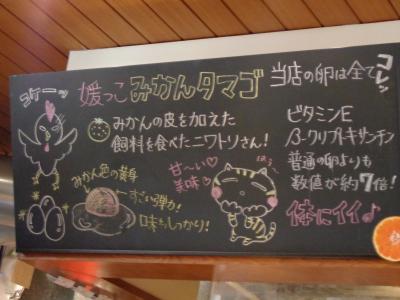 コケーッ
媛っこ みかんタマゴ
みかんの皮を加えた
飼料を食べたニワトリさん!
みかん色の黄身
すごい弾力!
味もしっかり!
甘〜い♡
美味♡
ほぅ〜
当店の卵は全て
コレッ
ビタミンE
β-クリプトキサンチン
普通の卵よりも
数値が約7倍!
体にイイ♪